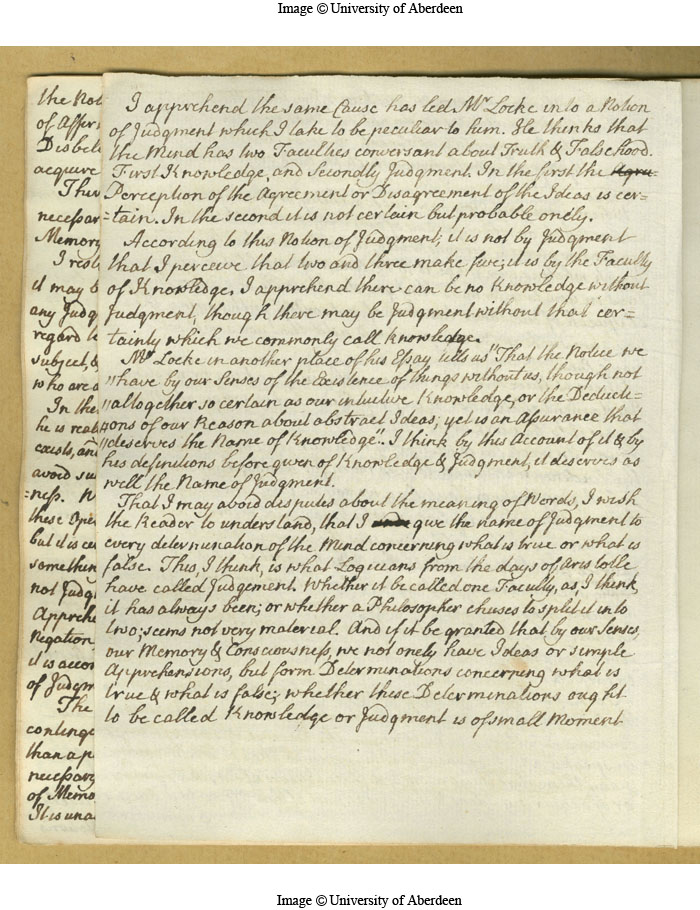 Image © University of Aberdeen
the Not
of Affir
Disbel
acquire
necessar
Memory
I rest
it may b
any Judg
regard t
subject, &
who are a
In the
he is real
causes, an
avoid su
=ness. W
these Ope
but it is ce
somethin
not Judg
Apprehe
Negation
it is acco
of Judgm
The
conting
than a p
necessary
of Memo
It is una
I apprehend the same Cause has led Mr Locke into a Notion
of Judgment which I take to be peculiar to him. He thinks that
the Mind has two Faculties conversant about Truth & Falsehood.
First Knowledge, and Secondly Judgment. In the first the Agree-
Perception of the Agreement or Disagreement of the Ideas is cer=
=tain. In the second it is not certain but probable onely.
According to this Notion of Judgment, it is not by Judgment
that I perceive that two and three make five; it is by the Faculty
of Knowledge. I apprehend there can be no Knowledge without
Judgment, though there may be Judgment without that cer=
tainty which we commonly call knowledge.
Mr Locke in another place of his Essay tells us "That the Notice we
"have by our Senses of the Existence of things without us, though not
"altogether so certain as our intuitive Knowledge, or the Deducti=
"ons of our Reason about abstract Ideas; yet is an Assurance that
"deserves the Name of Knowledge". I think by this Account of it & by
his definitions before given of Knowledge & Judgment, it deserves as
well the Name of Judgment.
That I may avoid disputes about the meaning of Words, I wish
the Reader to understand, that I give the name of Judgment to
every determination of the Mind concerning what is true or what is
false. This, I think, is what Logicians from the days of Aristotle
have called Judgement. Whether it be called one Faculty, as, I think,
it has always been; or whether a Philosopher chuses to split it into
two; seems not very material. And if it be granted that, by our Senses,
our Memory & Consciousness, we not onely have Ideas or simple
Apprehensions, but form Determinations concerning what is
true & what is false; whether these Determinations ought
to be called Knowledge or Judgment is of small Moment
Image © University of Aberdeen